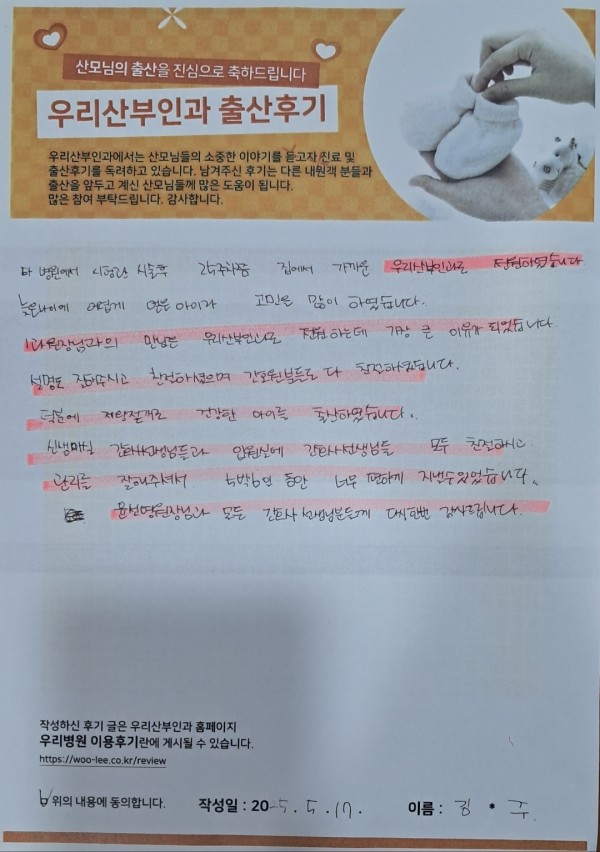 산모님의 출산을 진심으로 축하드립니다
우리산부인과 출산후기
우리산부인과에서는 산모님들의 소중한 이야기를 듣고자 진료 및
출산후기를 독려하고 있습니다. 남겨주신 후기는 다른 내원객 분들과
출산을 앞두고 계신 산모님들께 많은 도움이 됩니다.
많은 참여 부탁드립니다. 감사합니다.
타 병원에서 시험관 시술후 24주차쯤 집에서 가까운 우리산부인과로 전원하였습니다
늦은나이에 어렵게 얻은 아이라 고민은 많이 하였습니다.
1과원장님과의 만남은 우리산부인과로 전원하는데 가장 큰 이유가 되었습니다.
설명도 잘해주시고 친절하셨으며 간호원분들도 다 친절하셨습니다.
덕분에 제왕절개로 건강한 아이를 출산하였습니다.
신생아실 간호사선생님들과 입원실에 간호사선생님들 모두 친절하시고
관리를 잘해주셔서 5박6일 동안 너무 편하게 지낼수있었습니다.
원장님과 모든 간호사 선생님분들께 다시한번 감사드립니다.
작성하신 후기 글은 우리산부인과 홈페이지
우리병원 이용후기란에 게시될 수 있습니다.
https://woo-lee.co.kr/review
위의 내용에 동의합니다. 작성일 : 2025.5.17. 이름 : 김 * 주